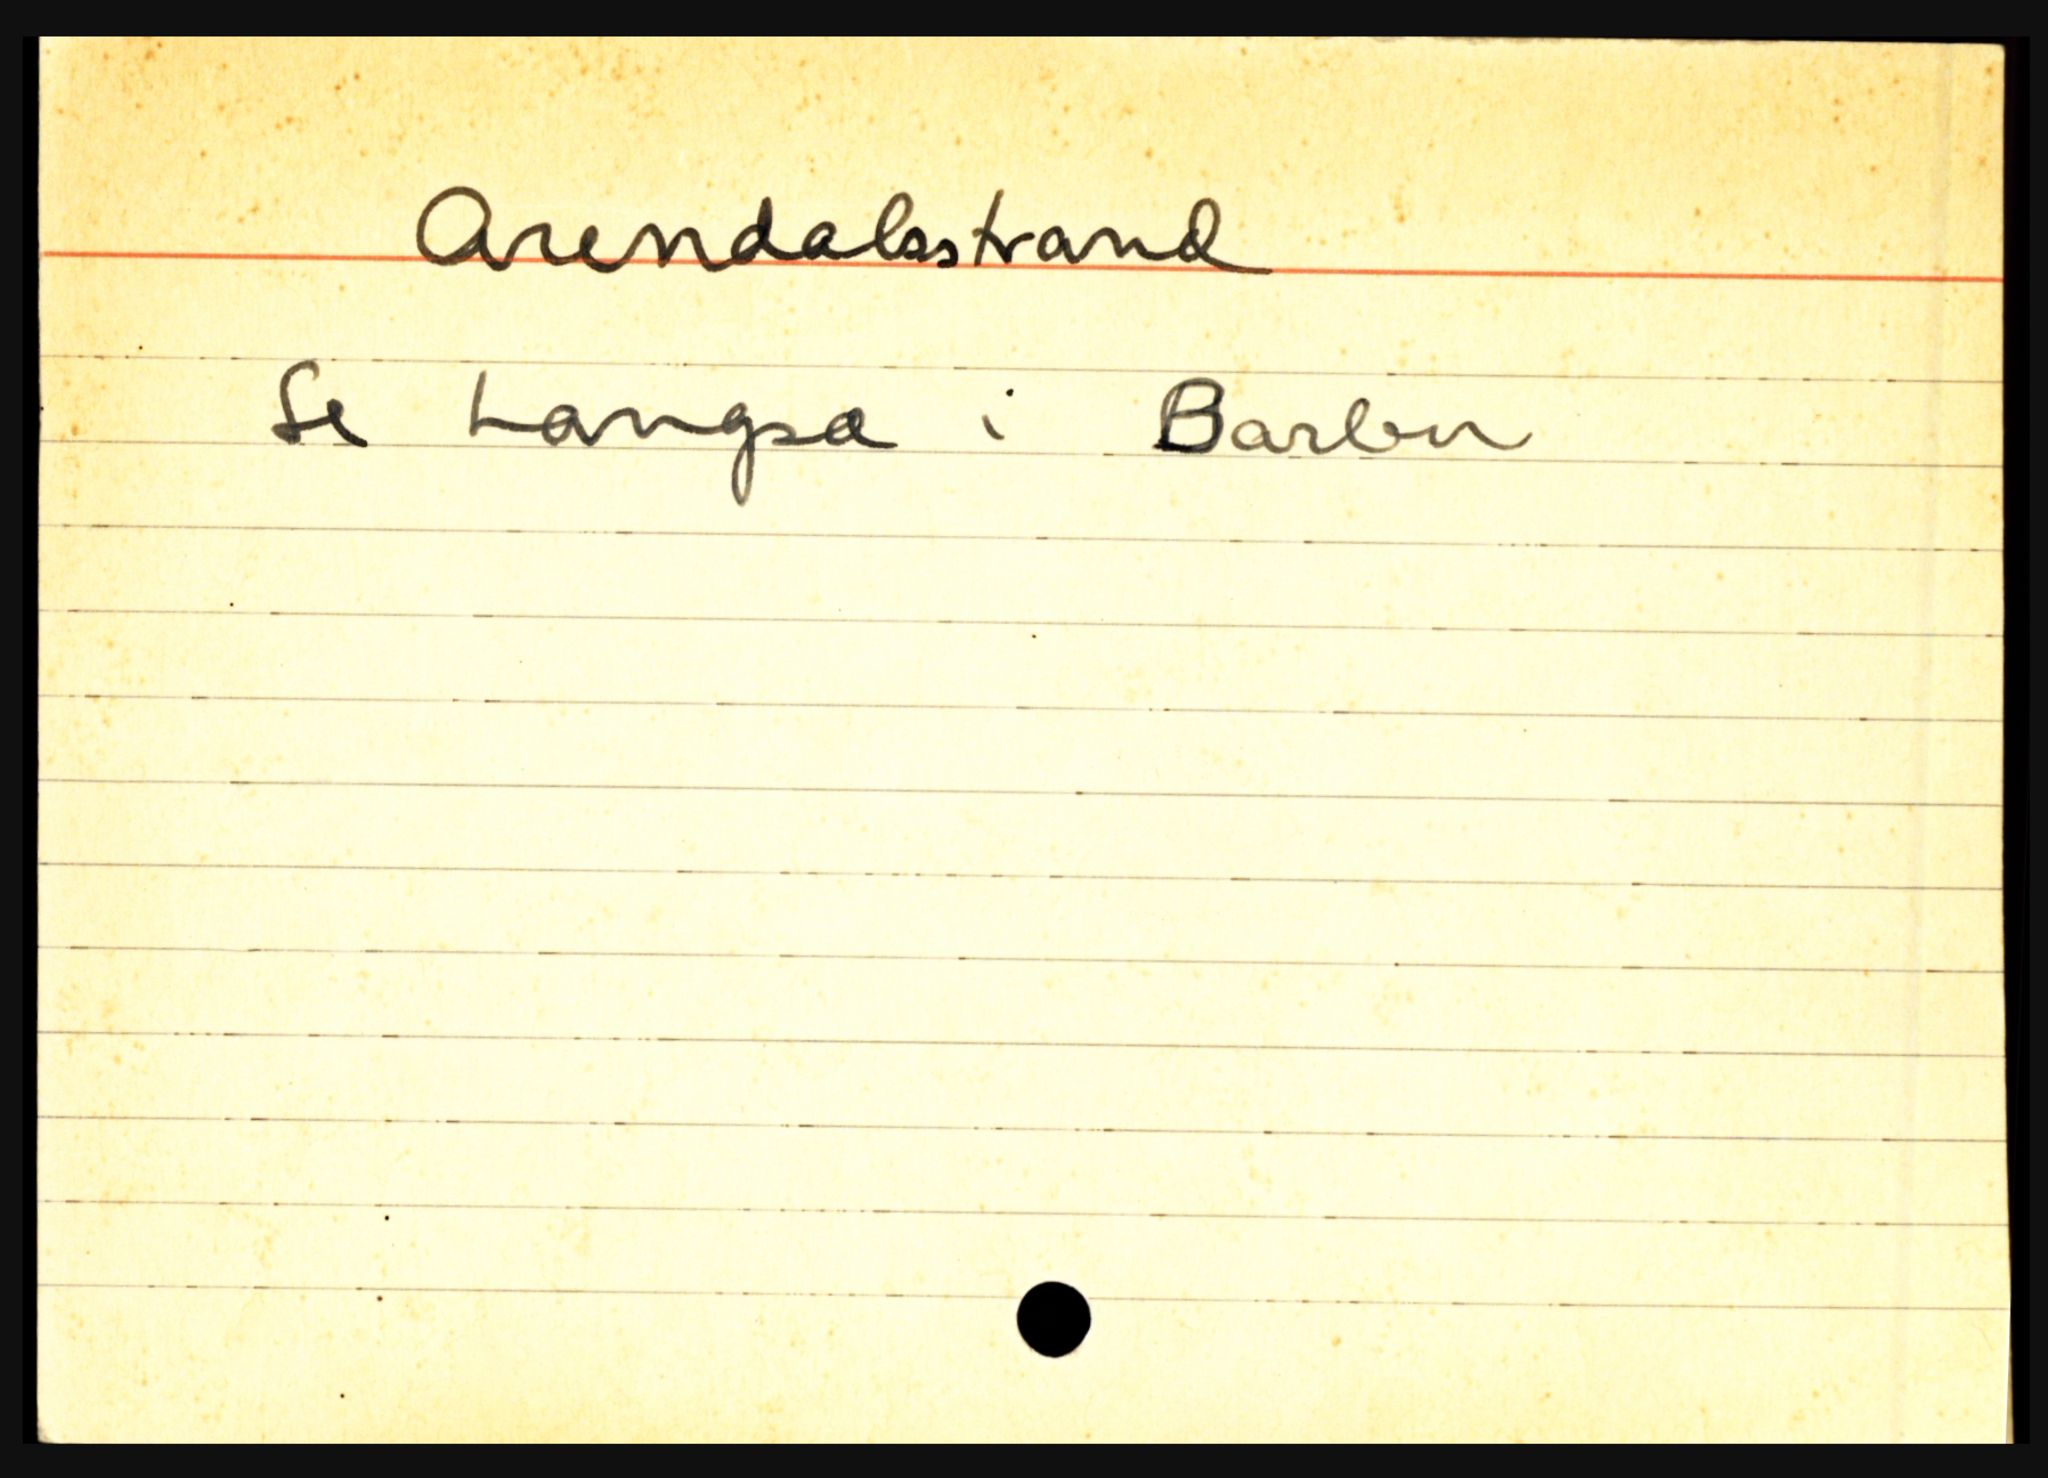 Arendalsstrand
Se Langsæ i Barbu